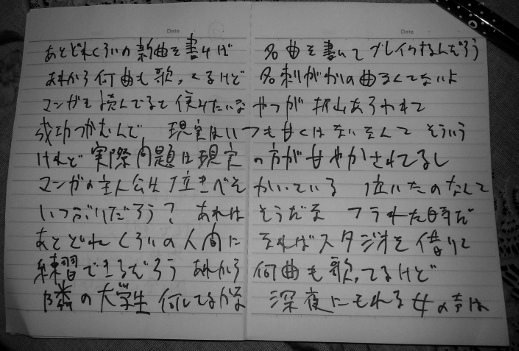 Date Date
あとどれくらいの新曲を書けば 名曲を書いてブレイクするんだろう
あれから何曲も歌ってるけど 名刺がわりの曲
マンガを読んでると みたいな やつが 沢山あらわれて
成功つかむんで 現実はいつも甘くはないなんて そういう
けれど 実際問題は現実 の方が甘やかされてるし
マンガの主人公は泣きべそ かいている 泣いたのなんて
いつぶりだろう？ あれは そうだな フラれた時だ
あとどれくらいの人間に スタジオを借りて
練習できるだろう あれから 何曲も歌ってるけど
隣の大学生 何してるかな 深夜にもれる女の声は